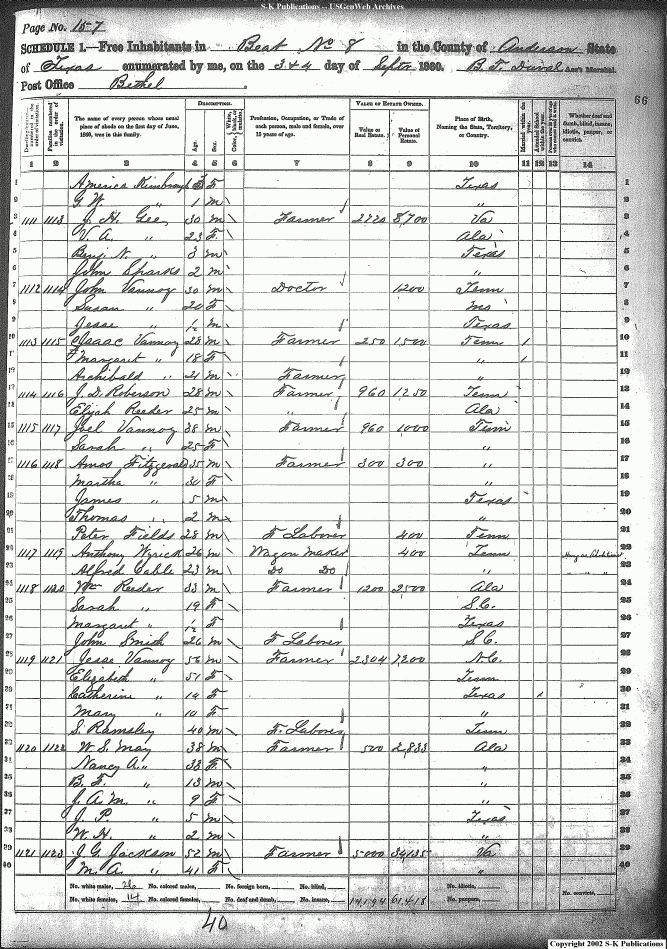 S-K Publications -- USGenWeb Archives
Page No. 157
SCHEDULE 1.—Free Inhabitants in Beat No 8 in the County of Anderson State
of Texas enumerated by me, on the 3 & 4 day of Septr 1860. B. F. Duval Ass't Marshal.
Post Office Bethel
66
DESCRIPTION. VALUE OF ESTATE OWNED.
The name of every person whose usual place of abode on the first day of June, 1860, was in this family. Age. Sex. Profession, Occupation, or Trade of each person, male and female, over 15 years of age. Value of Real Estate. Value of Personal Estate. Place of Birth, Naming the State, Territory, or Country. Married within the year. Attended School within the year. Whether deaf and dumb, blind, insane, idiotic, pauper, or convict.
1 2 3 4 5 6 7 8 9 10 11 12 13 14
1 America Kimbrough F Texas 1
2 G. W. " 1 m " 2
3 1111 1113 J. H. Gee 30 m Farmer 2720 8,700 Va 3
4 V. A. " 23 F. Ala 4
5 Benj. N. " 3 m Texas 5
6 John Sparks 2 m " 6
7 1112 1114 John Vannoy 30 m Doctor 1200 Tenn 7
8 Susan " 20 F Ms 8
9 Jesse " ½ m Texas 9
10 1113 1115 Isaac Vannoy 28 m Farmer 250 1500 Tenn 1 10
11 Margaret " 18 F " 1 11
12 Archibald " 21 m Farmer " 12
13 1114 1116 J. D. Roberson 28 m Farmer 960 1250 Tenn 13
14 Elijah Reeder 25 m " Ala 14
15 1115 1117 Joel Vannoy 38 m Farmer 960 1000 Tenn 15
16 Sarah " 25 F " 16
17 1116 1118 Amos Fitzgerald 35 m Farmer 300 300 " 17
18 Martha " 30 F " 18
19 James " 5 m Texas 19
20 Thomas " 2 m " 20
21 Peter Fields 28 m F. Laborer 400 Tenn 21
22 1117 1119 Anthony Wyrick 26 m Wagon maker 400 Tenn 22
23 Alfred Cable 23 m Do Do " 23
24 1118 1120 Wm Reeder 33 m Farmer 1200 2500 Ala 24
25 Sarah " 19 F S.C. 25
26 Margaret " ½ F Texas 26
27 John Smith 26 m F. Laborer S.C. 27
28 1119 1121 Jesse Vannoy 56 m Farmer 2304 7200 N.C. 28
29 Elizabeth " 51 F Tenn 29
30 Catherine " 14 F Texas 1 30
31 Mary " 10 F " 31
32 S. Ramsley 40 m F. Laborer Tenn 32
33 1120 1122 W. S. May 38 m Farmer 500 2,833 Ala 33
34 Nancy A. " 33 F " 34
35 B. F. " 13 m " 35
36 J. A. M. " 9 F " 36
37 J. P. " 5 m Texas 37
38 W. H. " 2 m " 38
39 1121 1123 J. G. Jackson 52 m Farmer 5000 34135 Va 39
40 M. A. " 41 F " 40
No. white males, 26 No. colored males, No. foreign born, No. blind, No. idiotic, No. convicts,
No. white females, 14 No. colored females, No. deaf and dumb, No. insane, No. paupers,
40
Copyright 2002 S-K Publications